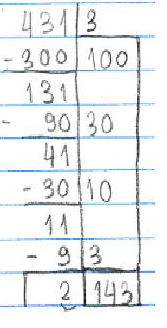 431 3
-300 100
131
- 90 30
41
-30 10
11
- 9 3
2 143